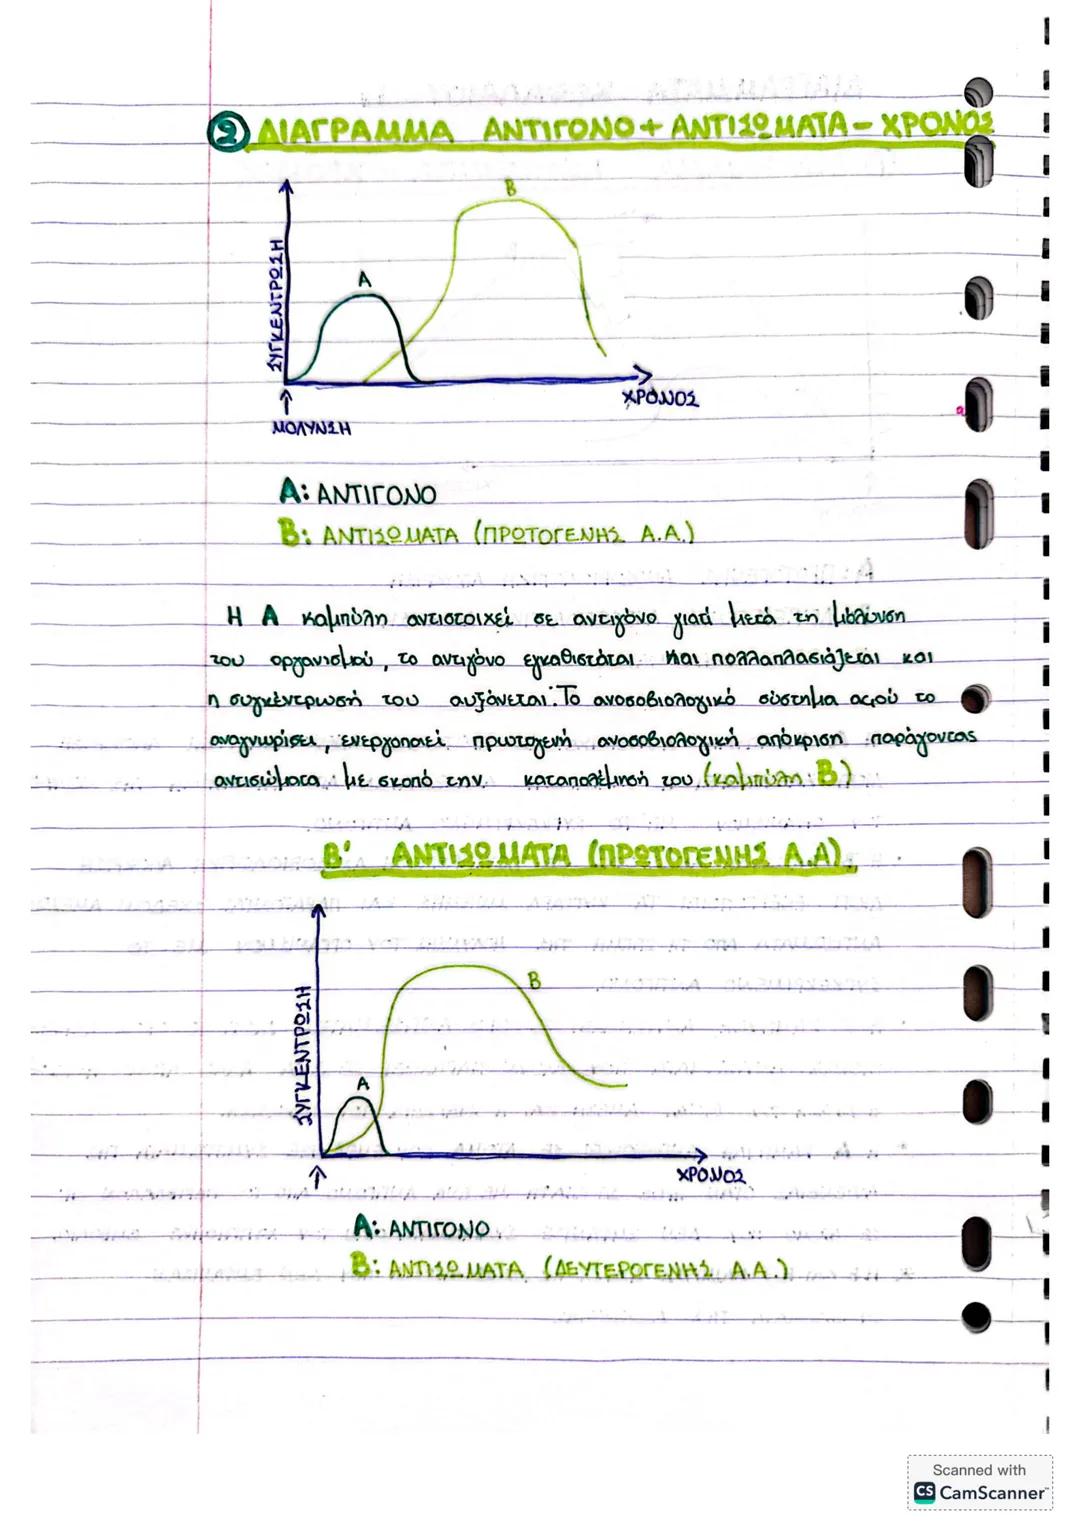 ② ΔΙΑΓΡΑΜΜΑ ΑΝΤΙΓΟΝΟ + ΑΝΤΙΣΩΜΑΤΑ - ΧΡΟΝΟΣ
Β
Α
ΣΥΓΚΕΝΤΡΩΣΗ
ΧΡΟΝΟΣ
ΜΟΛΥΝΣΗ
Α: ΑΝΤΙΓΟΝΟ
Β: ΑΝΤΙΣΩΜΑΤΑ (ΠΡΩΤΟΓΕΝΗΣ Α.Α.)
Η Α καμπύλη αντιστοιχεί σε αντιγόνο γιατί μετά τη μόλυνση
του οργανισμού, το αντιγόνο εγκαθίσταται και πολλαπλασιάζεται και
η συγκέντρωσή του αυξάνεται. Το ανοσοβιολογικό σύστημα αφού το
αναγνωρίσει, ενεργοποιεί πρωτογενή ανοσοβιολογική απόκριση παράγοντας
αντισώματα με σκοπό την καταπολέμησή του (καμπύλη Β)
Β' ΑΝΤΙΣΩΜΑΤΑ (ΠΡΩΤΟΓΕΝΗΣ Α.Α)
Β
ΣΥΓΚΕΝΤΡΩΣΗ
Α
ΧΡΟΝΟΣ
Α: ΑΝΤΙΓΟΝΟ
Β: ΑΝΤΙΣΩΜΑΤΑ (ΔΕΥΤΕΡΟΓΕΝΗΣ Α.Α.)
Scanned with
CS CamScanner